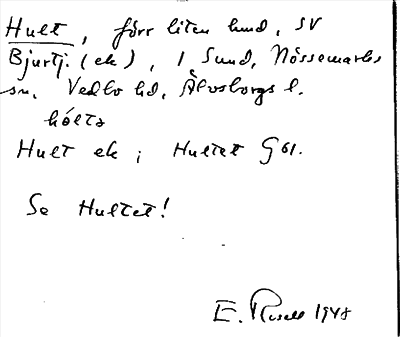 Hult, förr liten lund, SV
Bjurtj. (ek), i Sund, Nössemarks
sn. Vedbo hd, Älvsborgs l.
hólts
Hult ek ; Hultet G 61.
Se Hultet!
E. Rosell 1948